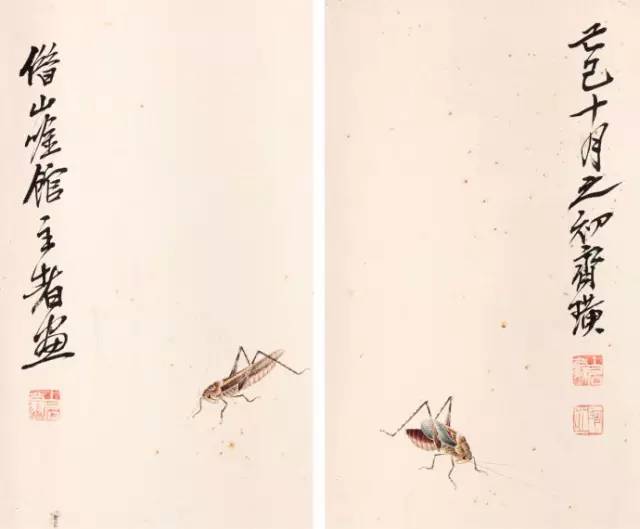 巳十月之初齊璜
借山唫館主者畫